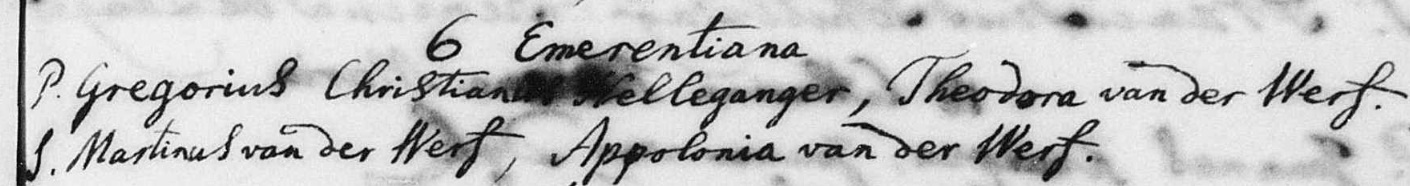 6 Emerentiana
P. Gregorius Christianus Helleganger, Theodora van der Werf.
S. Martinus van der Werf, Appolonia van der Werf.